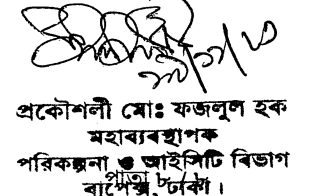 প্রকৌশলী মোঃ ফজলুল হক
মহাব্যবস্থাপক
পরিকল্পনা ও আইসিটি বিভাগ
বাপেক্স, ঢাকা।